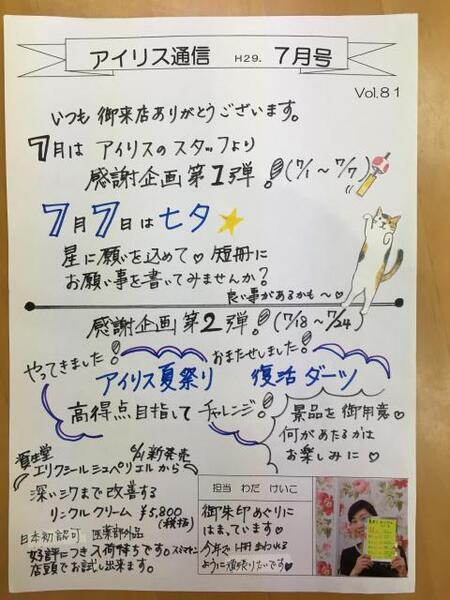 アイリス通信 H29. 7月号
Vol.81
いつも御来店ありがとうございます。
7月は アイリスのスタッフより
感謝企画第1弾!(7/1〜7/7)
7月7日は七夕
星に願いを込めて♡短冊に
お願い事を書いてみませんか?
良い事があるかも〜♡
感謝企画第2弾!(7/18〜7/24)
やってきました!
おまたせしました!
アイリス夏祭り 復活ダーツ
高得点目指してチャレンジ!
景品を御用意♡
何があたるかは
お楽しみに♡
資生堂 新発売
エリクシールシュペリエルから
深いシワまで改善する
リンクルクリーム ¥5,800
(税抜)
日本初認可 医薬部外品
好評につき入荷待ちです。スミマセン
店頭でお試し出来ます。
担当 わだ けいこ
御朱印めぐりに
はまっています♡
今年で1冊まわれる
ように頑張りたいです♡